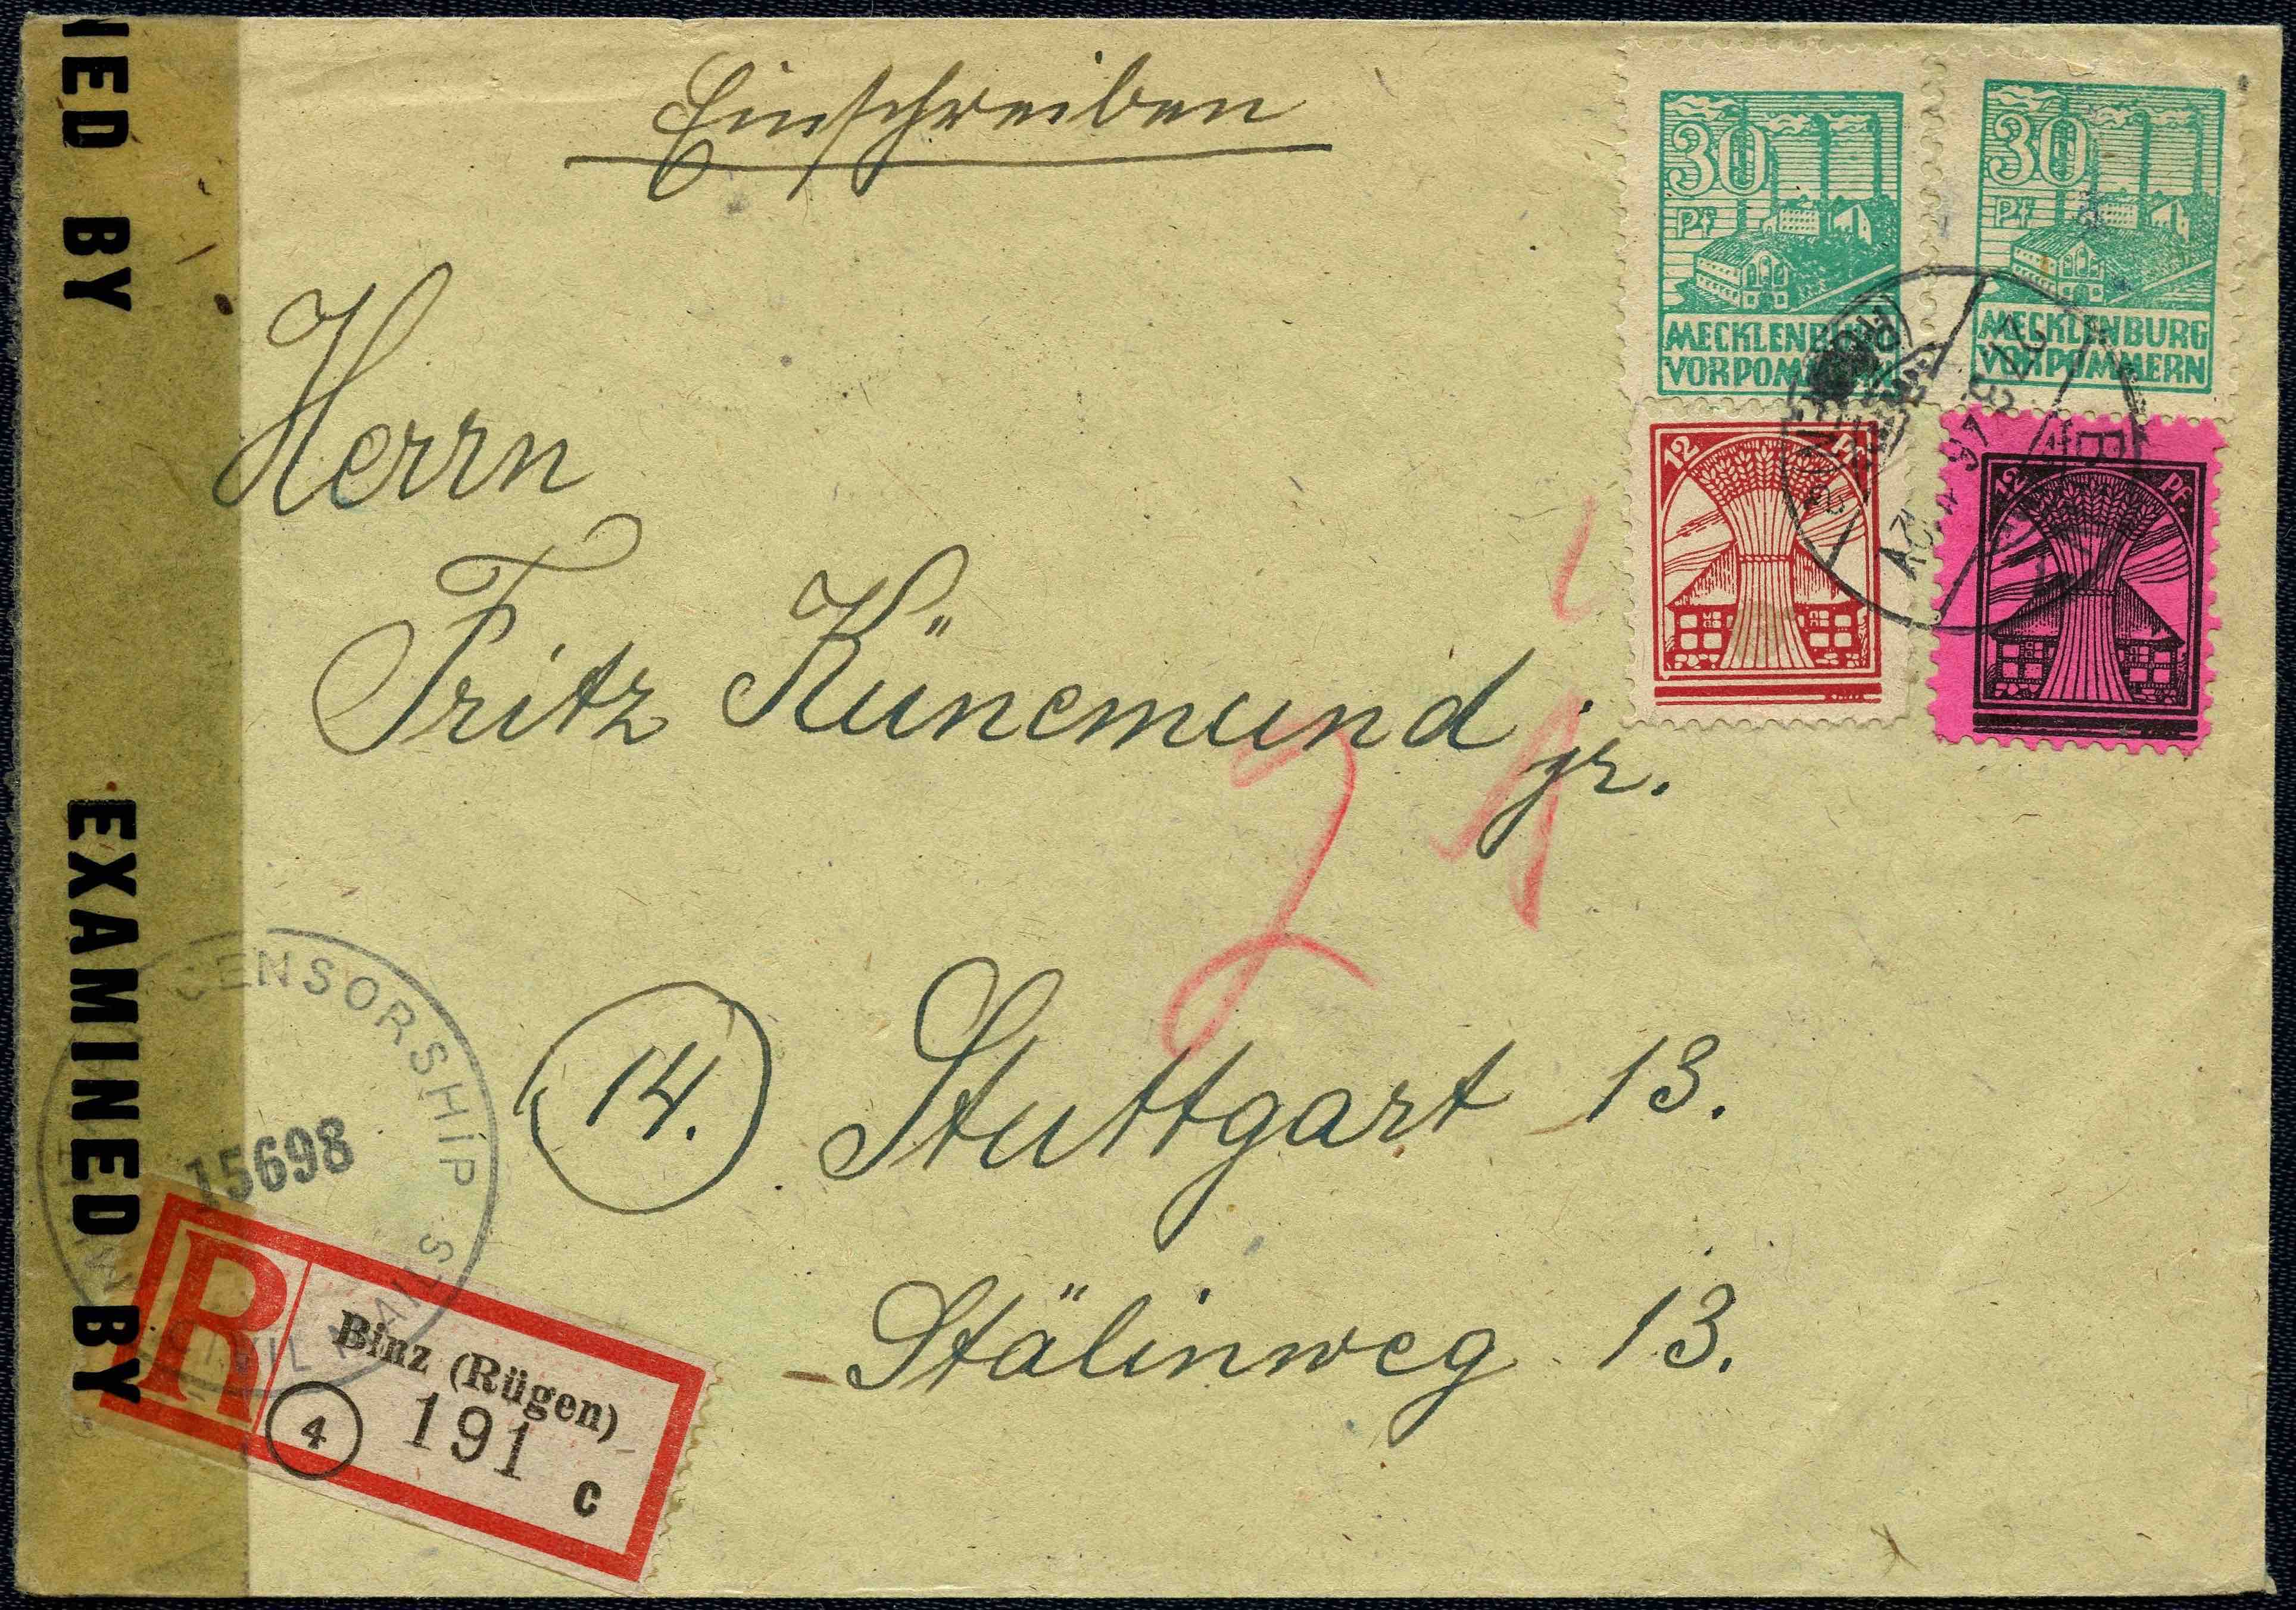 Einschreiben
30
Pf
MECKLENBURG
VORPOMMERN
30
Pf
MECKLENBURG
VORPOMMERN
12 Pf.
12 Pf.
Herrn
Fritz Künemund jr.
21
14. Stuttgart 13.
Stälinweg 13.
NED BY
EXAMINED BY
CENSORSHIP
CIVIL MAILS
15698
R
Binz (Rügen)
4
191
c